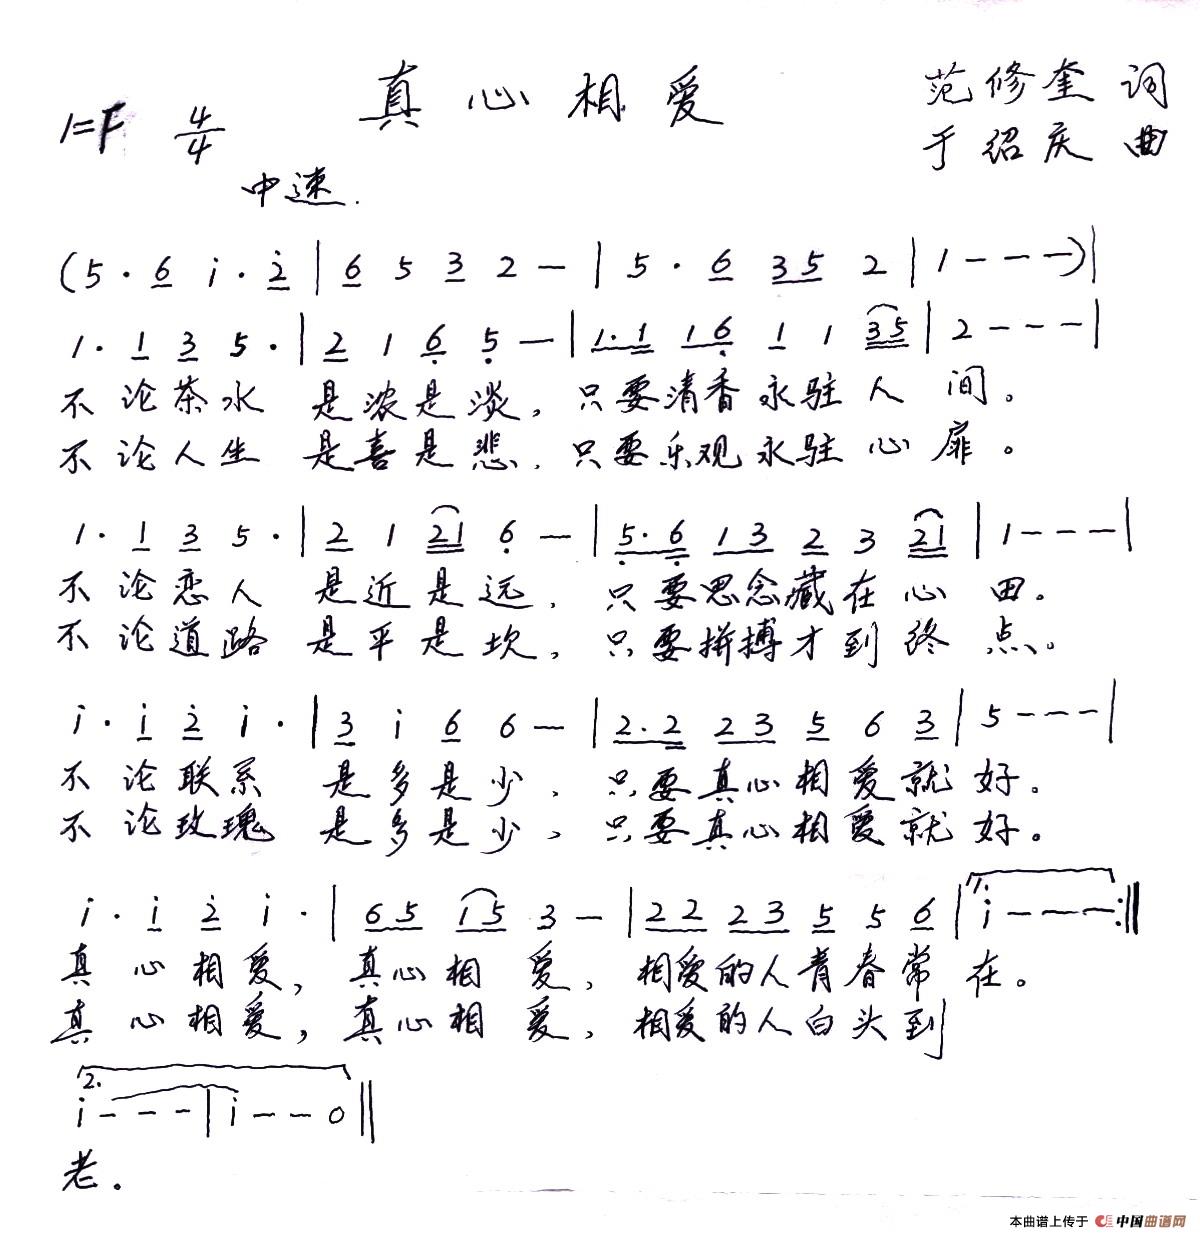 真心相爱
范修奎 词
1=F 4/4
于绍庆 曲
中速.
(5·6 i·2̇ | 6 5 3 2 — | 5·6 35 2 | 1 - - - )|
1·1 3 5· | 2 1 6̣ 5̣ — | 1·1 16̣ 1 1 35 | 2 - - - |
不论茶水 是浓是淡, 只要清香永驻人间。
不论人生 是喜是悲, 只要乐观永驻心扉。
1·1 3 5· | 2 1 21 6̣ — | 5̣·6̣ 13 2 3 21 | 1 - - - |
不论恋人 是近是远, 只要思念藏在心田。
不论道路 是平是坎, 只要拼搏才到终点。
i·i 2̇ i· | 3 i 6 6 — | 2·2 23 5 6 3 | 5 - - - |
不论联系 是多是少, 只要真心相爱就好。
不论玫瑰 是多是少, 只要真心相爱就好。
i·i 2̇ i· | 65 i5 3 — | 22 23 5 5 6 | 1. i - - - :||
真心相爱, 真心相爱, 相爱的人青春常在。
真心相爱, 真心相爱, 相爱的人白头到
2.
i - - - | i - - 0 ||
老.
本曲谱上传于 中国曲谱网